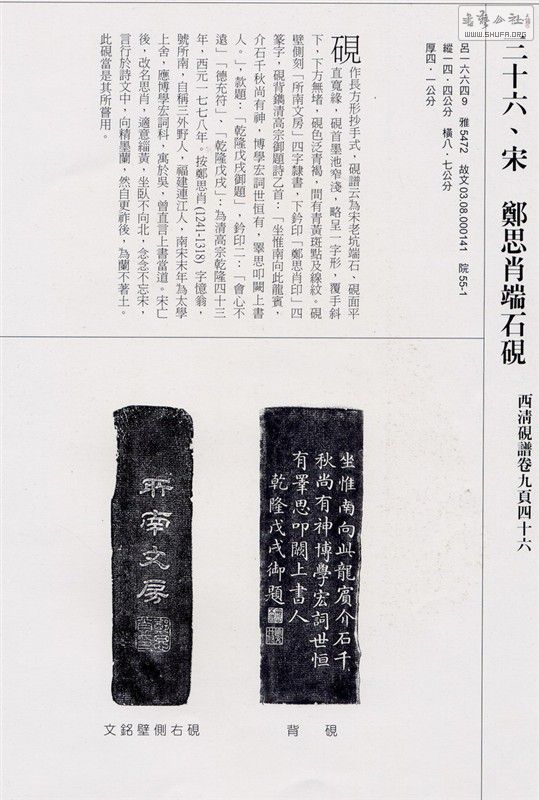 书艺公社
WWW.SHUFA.ORG
三十六、宋　鄭思肖端石硯
西淸硯譜卷九頁四十六
呂一六六四9　雅5472　故文03.08.000141　院55-1
縱一四．四公分　橫八．七公分
厚四．一公分
硯作長方形抄手式，硯譜云為宋老坑端石、硯面平
直寬緣，硯首墨池窄淺，略呈一字形，覆手斜
下，下方無堵，硯色泛青褐，間有青黃斑點及線紋。硯
壁側刻「所南文房」四字隸書，下鈐印「鄭思肖印」四
篆字，硯背鐫清高宗御題詩乙首：「坐惟南向此龍賓，
介石千秋尚有神，博學宏詞世恒有，罩思叩闕上書
人。」，款題：「乾隆戊戌御題」，鈐印二：「會心不
遠」、「德充符」、「乾隆戊戌」：為清高宗乾隆四十三
年，西元一七七八年。按鄭思肖 (1241-1318) 字憶翁，
號所南，自稱三外野人，福建連江人，南宋末年為太學
上舍，應博學宏詞科，寓於吳，曾直言上書當道。宋亡
後，改名思肖，適意緇黃，坐臥不向北，念念不忘宋，
言行於詩文中，向精墨蘭，然自更祚後，為蘭不著土。
此硯當是其所嘗用。
坐惟南向此龍賓介石千
秋尚有神博學宏詞世恒
有罩思叩闕上書人
乾隆戊戌御題
所南文房
硯背
硯右側壁銘文